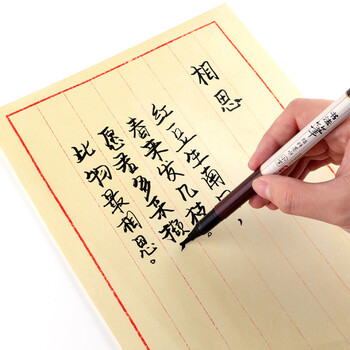 相思
红豆生南,
春来发几枝。
愿君多采撷
此物最相思。